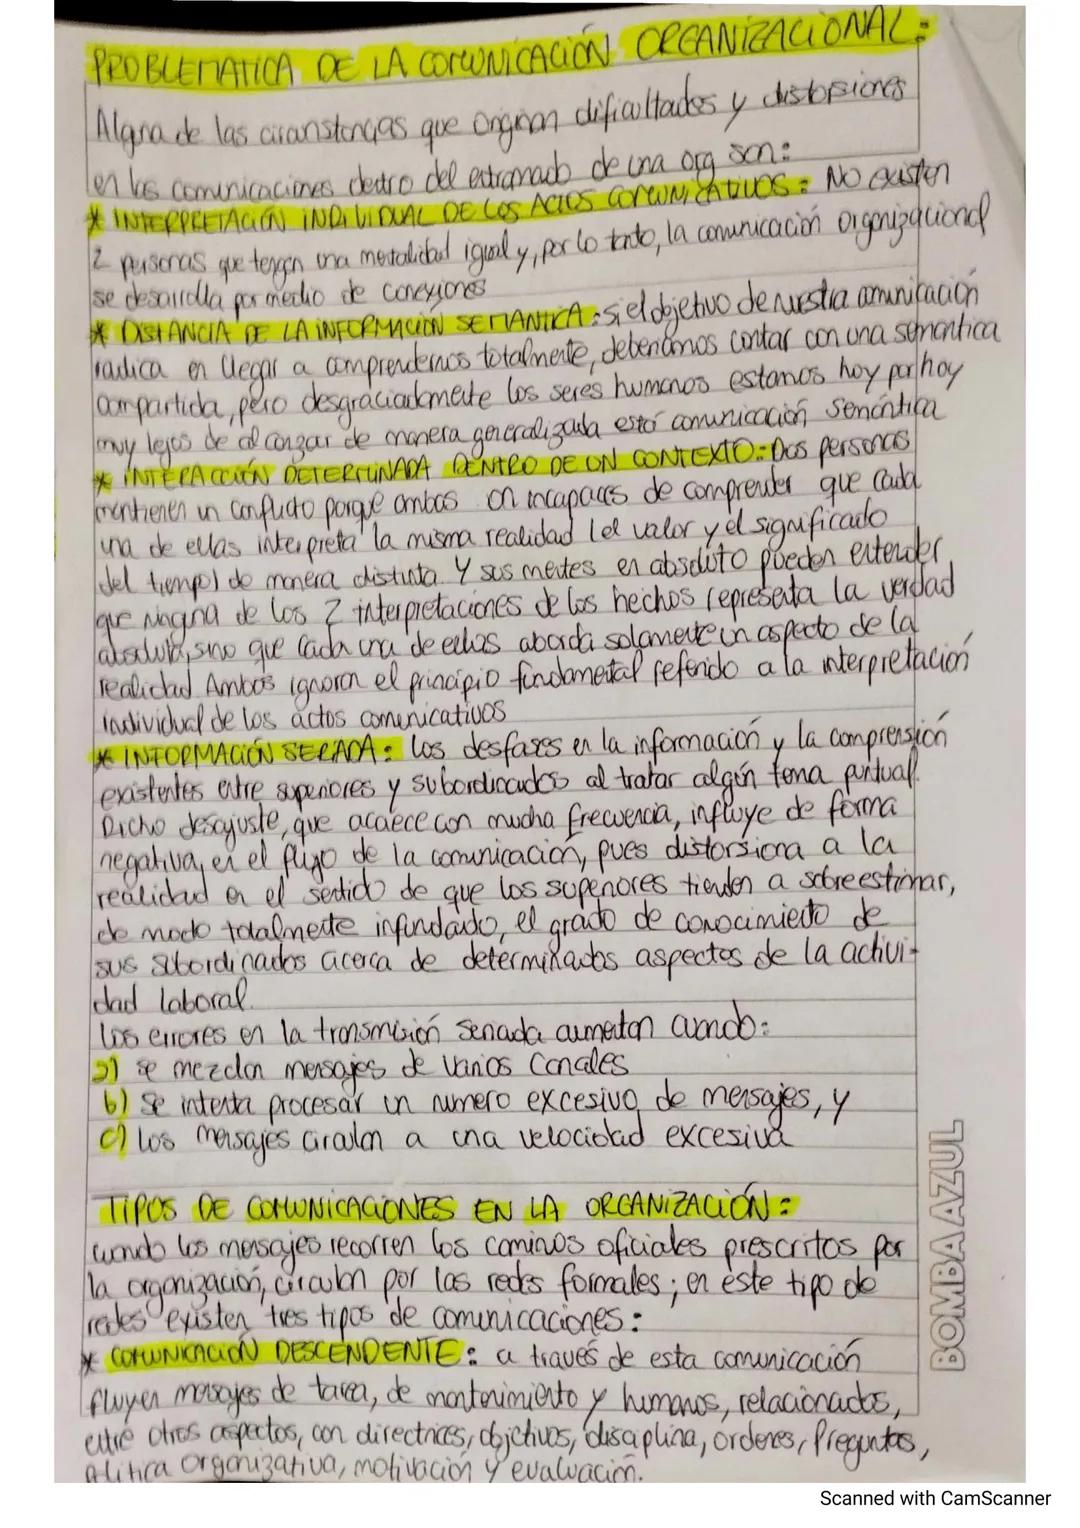 PROBLEMATICA DE LA COMUNICACIÓN ORGANIZACIONAL:
Alguna de las circunstancias que originan dificultades y distorsiones
en las comunicaciones dentro del entramado de una org son:
* INTERPRETACIÓN INDIVIDUAL DE LOS ACTOS COMUNICATIVOS: No existen
2 personas que tengan una mentalidad igual y, por lo tanto, la comunicación organizacional
se desarrolla por medio de conexiones
* DISTANCIA DE LA INFORMACIÓN SEMANTICA: Si el objetivo de nuestra comunicación
radica en llegar a comprendernos totalmente, deberíamos contar con una semantica
compartida, pero desgraciadamente los seres humanos estamos hoy por hoy
muy lejos de alcanzar de manera generalizada está comunicación semántica
* INTERACCIÓN DETERMINADA DENTRO DE UN CONTEXTO: Dos personas
mantienen un conflicto porque ambas on incapaces de comprender que cada
una de ellas interpreta la misma realidad (el valor y el significado
del tiempo) de manera distinta y sus mentes en absoluto pueden entender
que ninguna de los 2 interpretaciones de los hechos representa la verdad
absoluta, sino que cada una de ellas aborda solamente un aspecto de la
realidad Ambos ignoran el principio fundamental referido a la interpretación
individual de los actos comunicativos
* INFORMACIÓN SERIADA: los desfases en la información y la comprensión
existentes entre superiores y subordinados al tratar algún tema puntual.
Dicho desajuste, que acaece con mucha frecuencia, influye de forma
negativa, en el flujo de la comunicación, pues distorsiona a la
realidad en el sentido de que los superiores tienden a sobreestimar,
de modo totalmente infundado, el grado de conocimiento de
sus subordinados acerca de determinados aspectos de la activi-
dad laboral.
los errores en la transmisión seriada aumentan cuando:
a) se mezclan mensajes de varios canales
b) se intenta procesar un numero excesivo de mensajes, y
c) los mensajes circulan a una velocidad excesiva
TIPOS DE COMUNICACIONES EN LA ORGANIZACIÓN:
cuando los mensajes recorren los caminos oficiales prescritos por
la organización, circulan por las redes formales; en este tipo de
redes existen tres tipos de comunicaciones:
* COMUNICACIÓN DESCENDENTE: a través de esta comunicación
fluyen mensajes de tarea, de mantenimiento y humanos, relacionados,
entre otros aspectos, con directrices, objetivos, disciplina, ordenes, Preguntas,
politica organizativa, motivación y evaluación.
BOMBA AZUL
Scanned with CamScanner